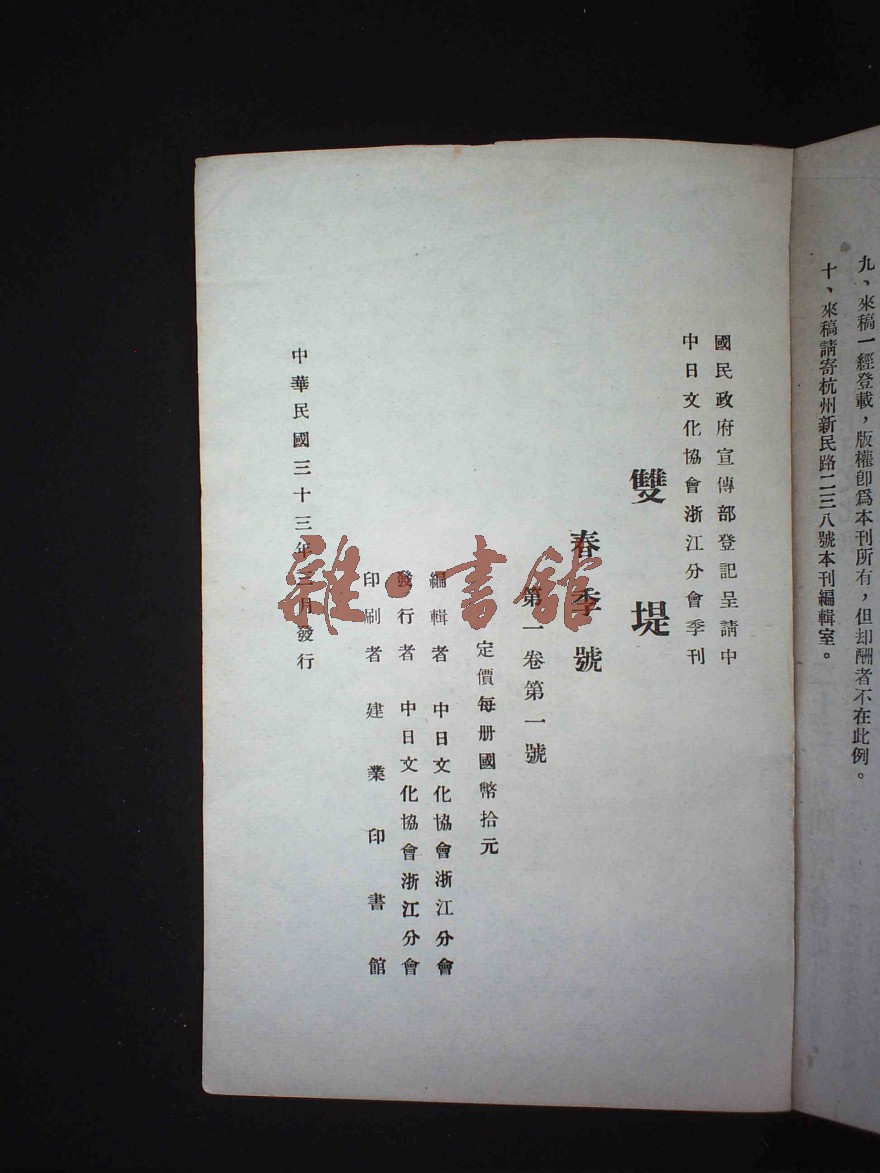 九、來稿一經登載，版權卽爲本刊所有，但却酬者不在此例。
十、來稿請寄杭州新民路二三八號本刊編輯室。
國民政府宣傳部登記呈請中
中日文化協會浙江分會季刊
雙堤
春季號
第一卷第一號
定價每册國幣拾元
編輯者 中日文化協會浙江分會
發行者 中日文化協會浙江分會
印刷者 建業印書館
中華民國三十三年三月發行
雜·書館